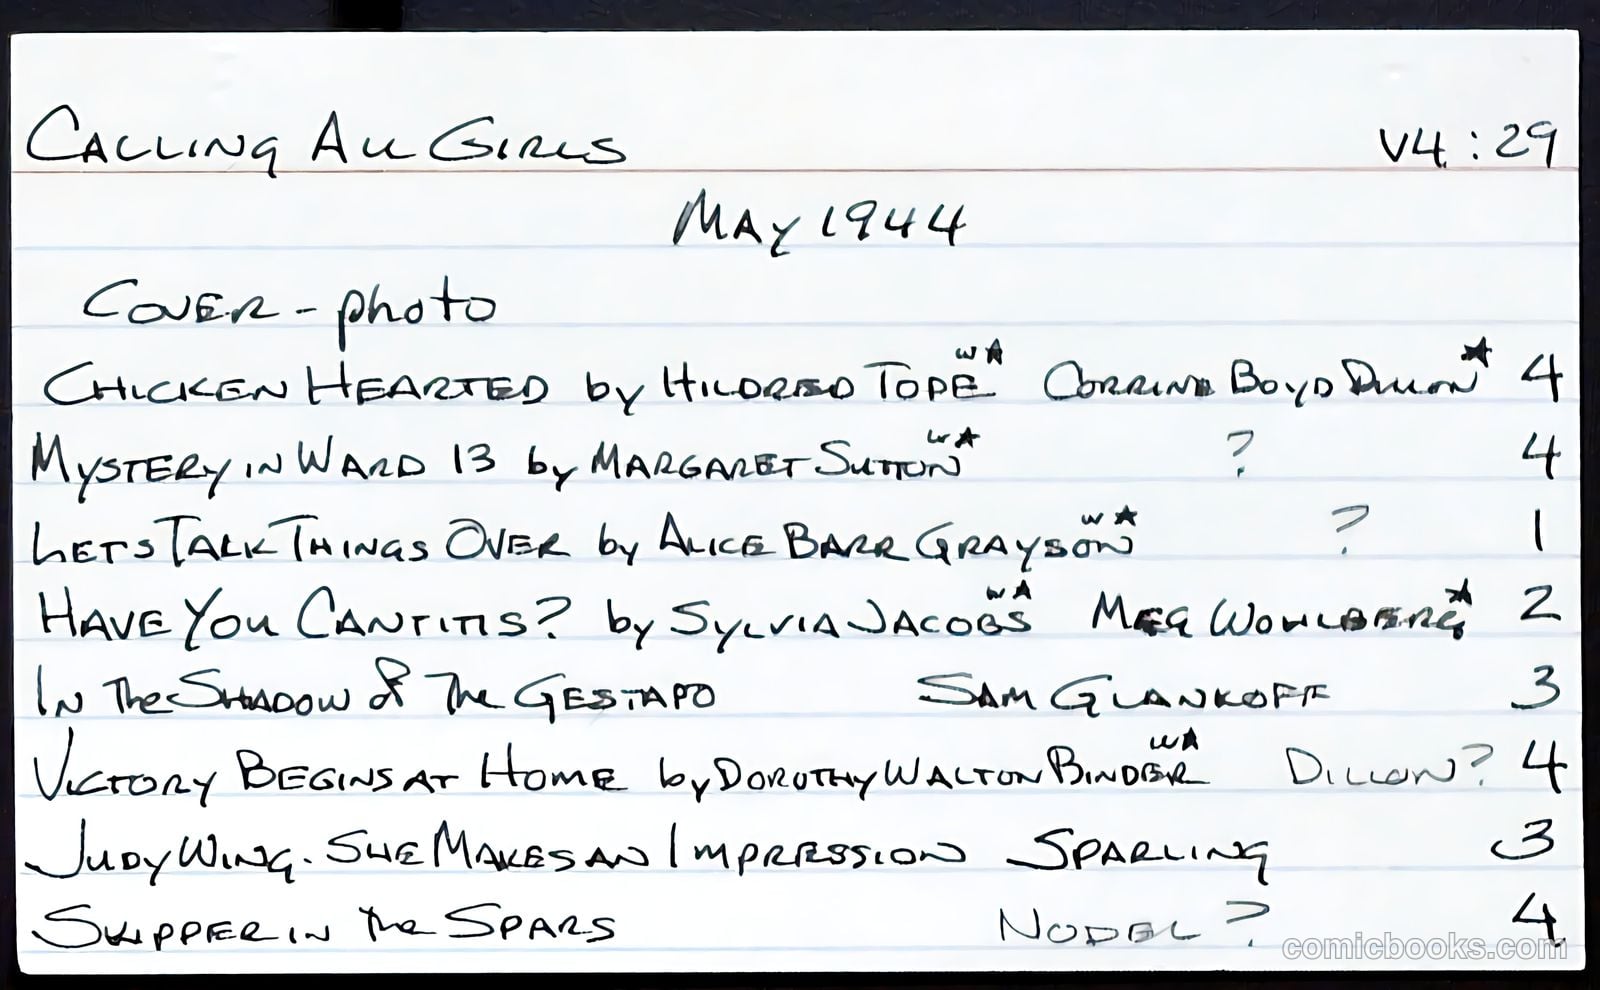 CALLING ALL GIRLS V4:29
MAY 1944
COVER - photo
CHICKEN HEARTED by HILDRED TOPE w★ CORRINE BOYD DILLON★ 4
MYSTERY IN WARD 13 by MARGARET SUTTON w★ ? 4
LETS TALK THINGS OVER by ALICE BARR GRAYSON w★ ? 1
HAVE YOU CANTITIS? by SYLVIA JACOBS w★ MEG WOHLBERG★ 2
IN The SHADOW of The GESTAPO SAM GLANKOFF 3
VICTORY BEGINS AT HOME by DOROTHY WALTON BINDER w★ DILLON? 4
JUDY WING. SHE MAKES AN IMPRESSION SPARLING 3
SKIPPER IN the SPARS NODEL? 4
comicbooks.com